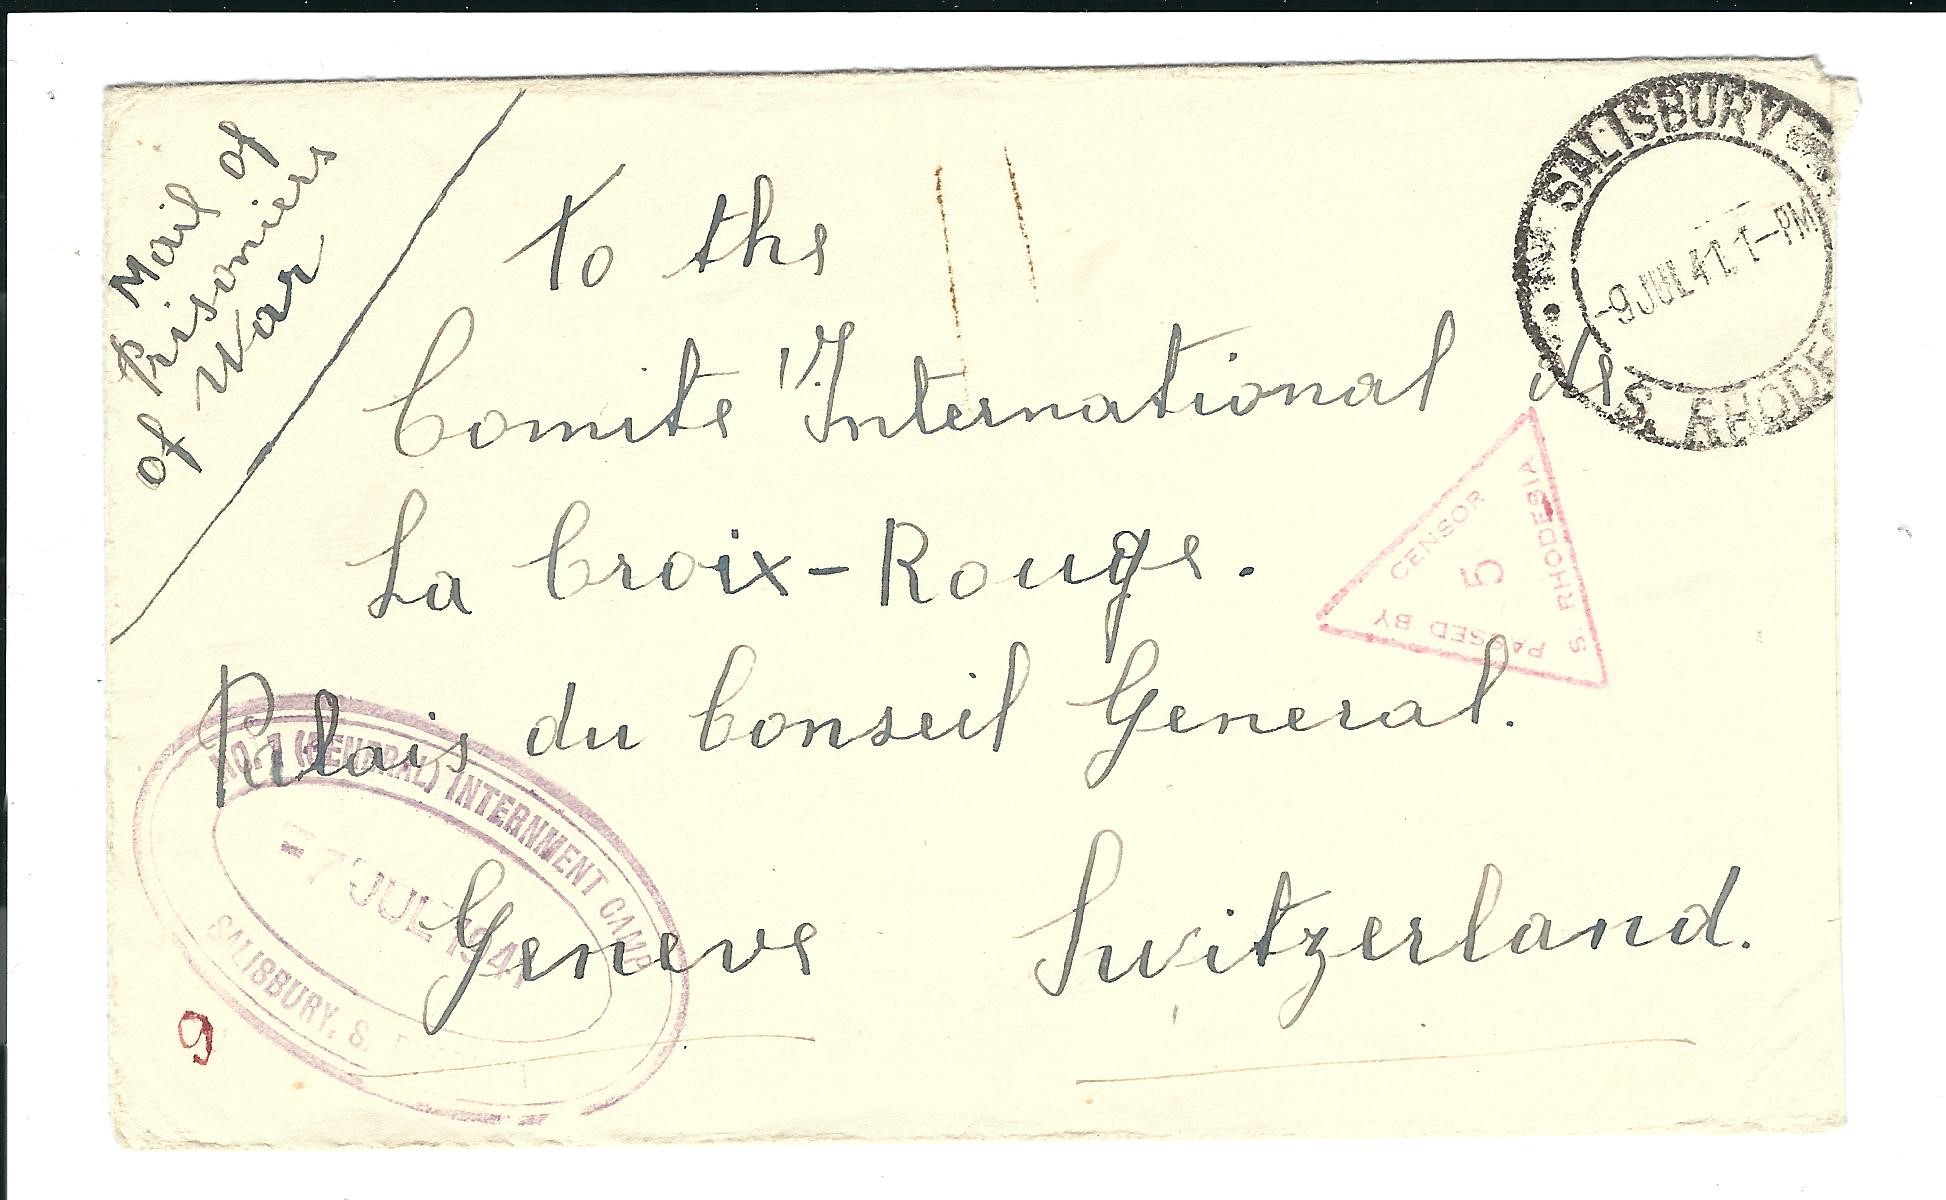 Mail of
Prisoniers
of War
To the
Comité International de
La Croix-Rouge.
Palais du Conseil General.
Geneve Switzerland.
SALISBURY
-9 JUL 41. 1-PM
S. RHODES
PASSED BY CENSOR
5
S. RHODESIA
NO. 1 (GENERAL) INTERNMENT CAMP
-7 JUL 1941
SALISBURY, S.
9